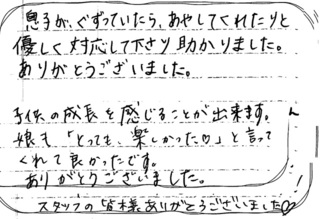 息子が、ぐずっていたら、あやしてくれたりと
優しく対応して下さり助かりました。
ありがとうございました。
子供の成長を感じることが出来ます。
娘も「とっても、楽しかった♡」と言って
くれて良かったです。
ありがとうございました。
スタッフの皆様ありがとうございました♡